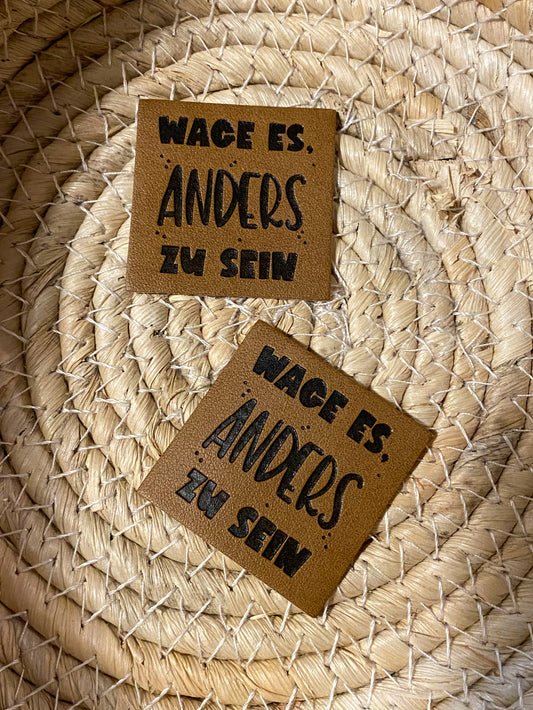 WAGE ES,
ANDERS
ZU SEIN
WAGE ES,
ANDERS
ZU SEIN